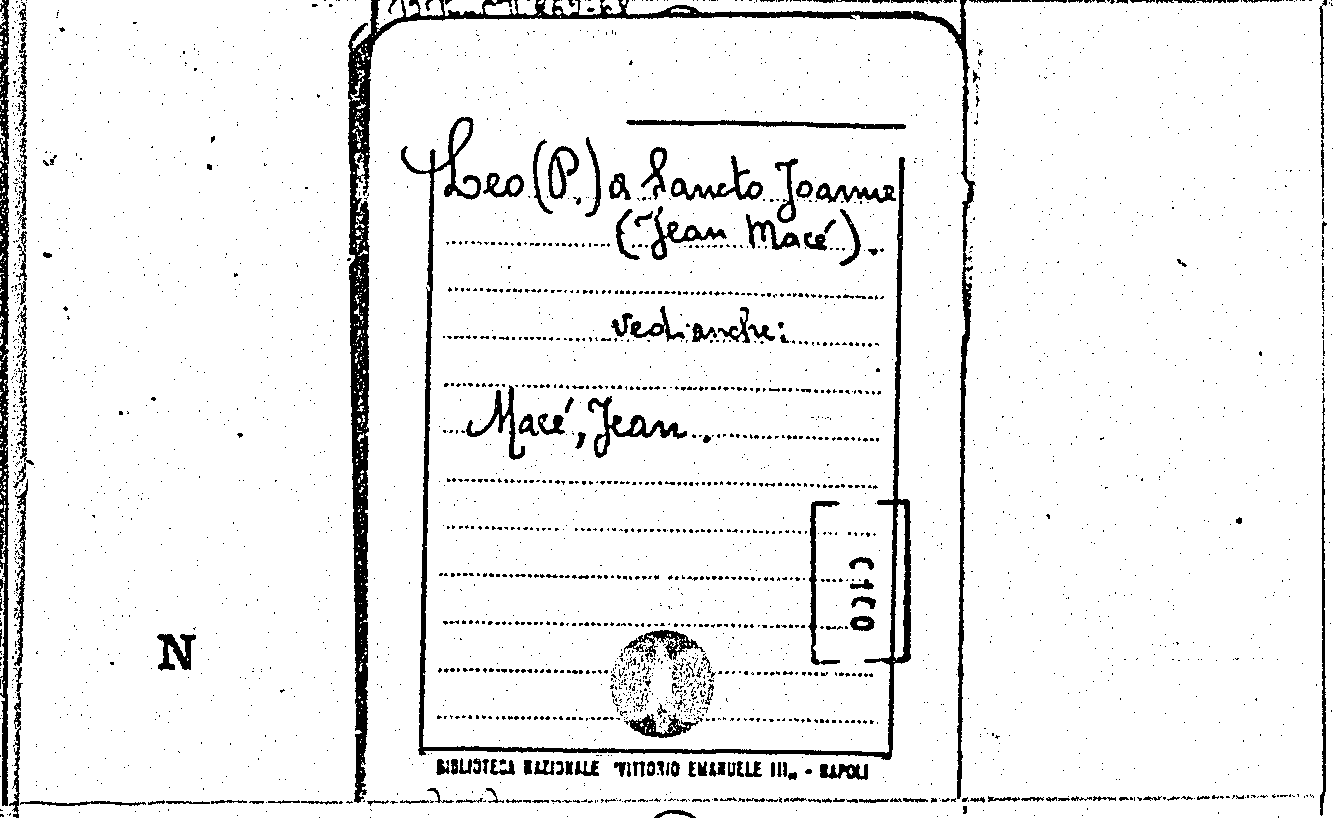 Leo (P.) a Sancto Joanne
(Jean Macé).
vedi anche:
Macé, Jean.
N
BIBLIOTECA NAZIONALE "VITTORIO EMANUELE III„ - NAPOLI